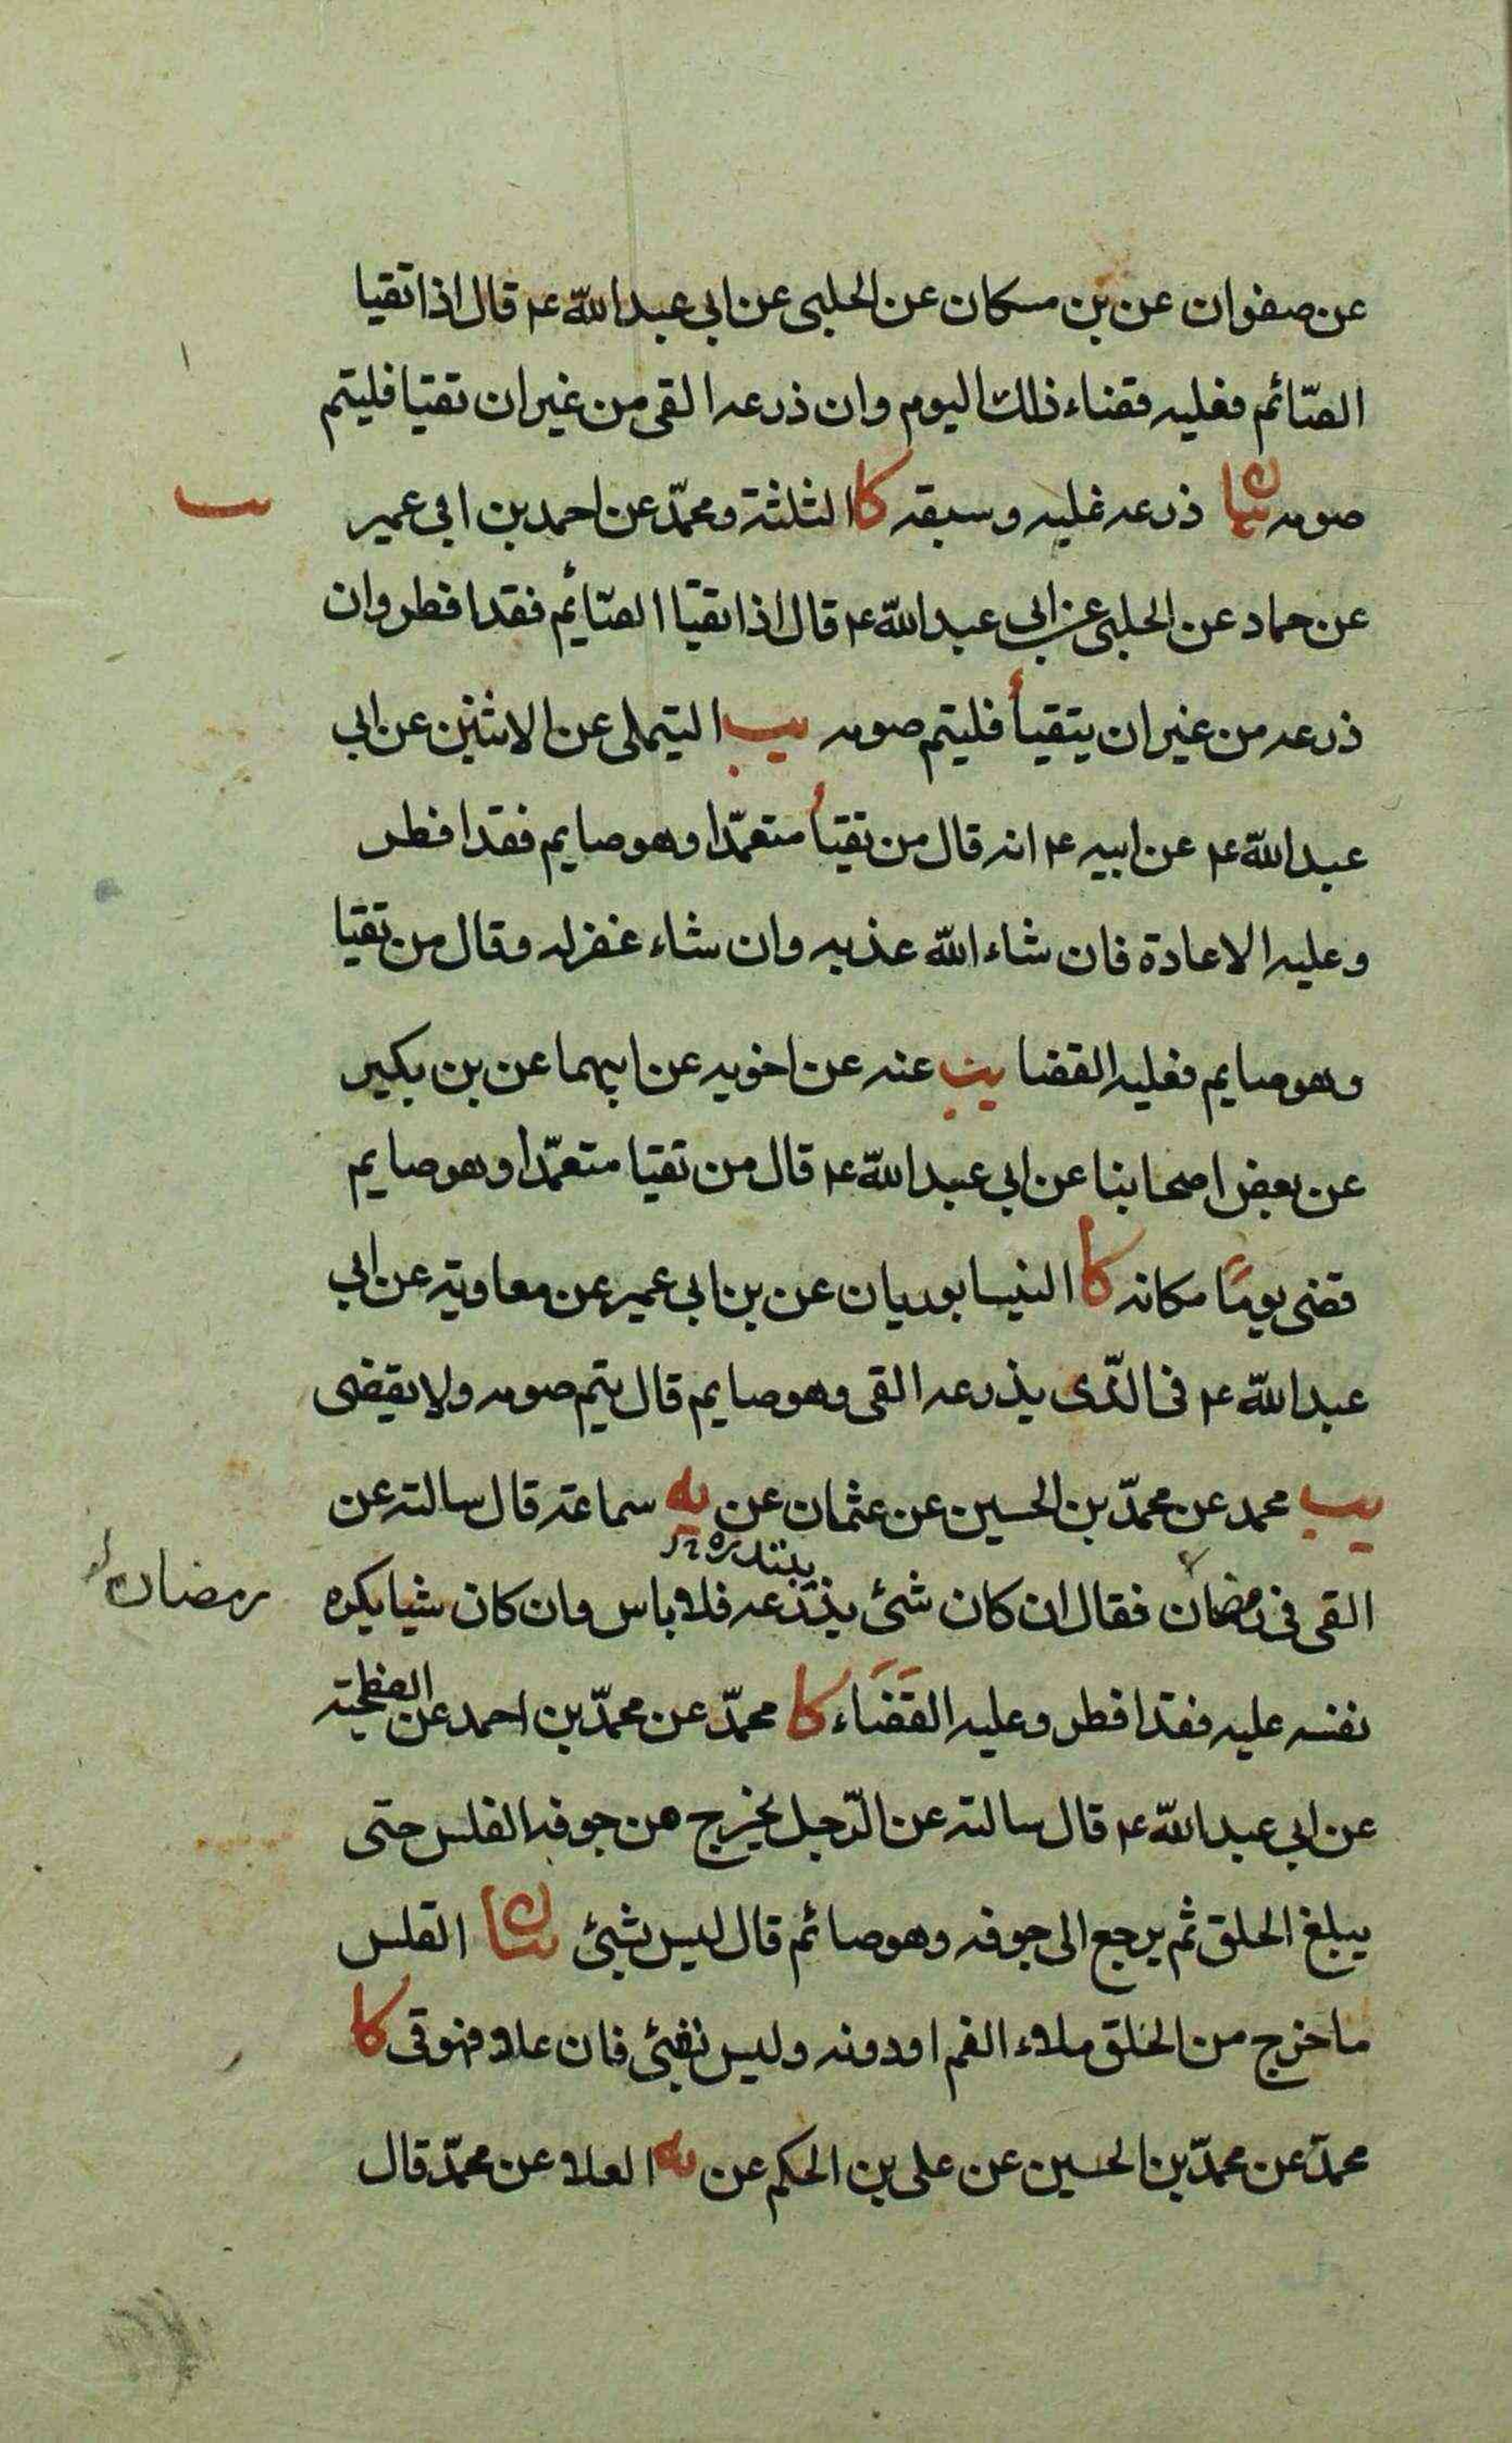 عن صفوان عن بن مسكان عن الحلبى عن ابى عبد الله ع قال اذا تقيا
الصّائم فعليه قضاء ذلك اليوم وان ذرعه القى من غير ان تقيا فليتم
صومه بيان ذرعه غلبه وسبقه كا الثلثة ومحمّد عن احمد بن ابى عمير
عن حماد عن الحلبى عن ابى عبد الله ع قال اذا تقيّا الصّائم فقد افطر وان
ذرعه من غير ان يتقيأ فليتم صومه يب التيملى عن الاثنين عن ابى
عبد الله ع عن ابيه ع انه قال من تقيأ متعمّدا وهو صايم فقد افطر
وعليه الاعادة فان شاء الله عذبه وان شاء غفر له وقال من تقيا
وهو صايم فعليه القضا يب عنه عن اخويه عن ابيهما عن بن بكير
عن بعض اصحابنا عن ابى عبد الله ع قال من تقيا متعمّدا وهو صايم
قضى يومًا مكانه كا النيسابوريان عن بن ابى عمير عن معاوية عن ابى
عبد الله ع فى الذّى يذرعه القى وهو صايم قال يتم صومه ولا يقضى
يب محمد عن محمّد بن الحسين عن عثمان عن يه سماعة قال سالته عن
القى فى رمضان فقال ان كان شئ يذرعه فلا باس وان كان شيا يكره
رمضان
نفسه عليه فقد افطر وعليه القَضَاء كا محمّد عن محمّد بن احمد عن الفطحية
عن ابى عبد الله ع قال سالته عن الرّجل يخرج من جوفه القلس حتى
يبلغ الحلق ثم يرجع الى جوفه وهو صائم قال ليس بشئ بيان القلس
ما خرج من الحلق ملاء الفم او دونه وليس بقئ فان علا فهو قى كا
محمّد عن محمّد بن الحسين عن على بن الحكم عن يه العلا عن محمّد قال